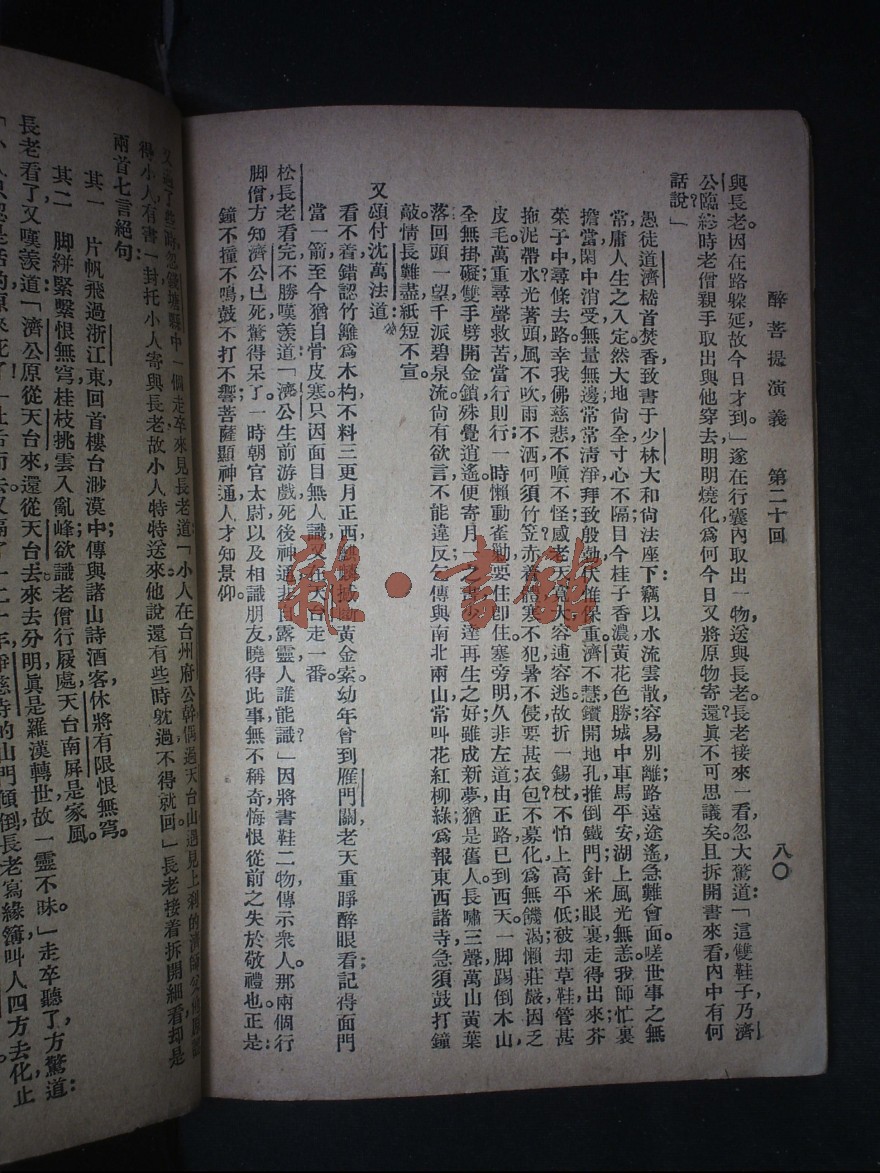 醉菩提演義　第二十回　八〇
與長老。因在路躲延，故今日才到。」遂在行囊內取出一物，送與長老。長老接來一看，忽大驚道：「這雙鞋子，乃濟
公臨終時老僧親手取出與他穿去，明明燒化，爲何今日又將原物寄還？眞不可思議矣。且拆開書來看，內中有何
話說」
愚徒道濟稽首焚香，致書于少林大和尙法座下：竊以水流雲散，容易別離；路遠途遙，急難會面。嗟世事之無
常，庸人生之入定。然大地尙全，寸心不隔。目今桂子香濃，黃花色勝，城中車馬平安，湖上風光無恙。我師忙裏
擔當，閑中消受，無量無邊，常常清淨。拜致殷勤，伏惟保重。濟不慧，鑽開地孔，推倒鐵門，針米眼裏走得出來，芥
菜子中尋條去路。幸我佛慈悲，不嗔不怪；感老天寬大，容逋容逃。故折一錫杖，不怕上高平低；破却草鞋，管甚
拖泥帶水。光著頭，風不吹，雨不洒，何須竹笠；赤着
寒不犯，暑不侵，要甚衣包。不募化，爲無饑渴；懶莊嚴，因乏
皮毛。萬重尋聲救苦，當行則行；一時懶動雀勸，要住卽住。塞旁明久非左道，由正路已到西天。一脚踢倒木山，
全無掛礙；雙手劈開金鎖，殊覺逍遙。便寄月
達再生之好。雖成新夢，猶是舊人。長嘯三聲，萬山黃葉
落；回頭一望，千派碧泉流。尙有欲言，不能違反，乞傳與南北兩山，常叫花紅柳綠；爲報東西諸寺，急須鼓打鐘
敲。情長難盡，紙短不宣。
又頌付沈萬法道：
看不着，錯認竹籬爲木杓。不料三更月正西，麒麟撼斷黃金索。幼年曾到雁門關，老天重睜醉眼看；記得面門
當一箭，至今猶自骨皮寒。只因面目無人識，又在天台走一番。
松長老看完，不勝嘆羨道：「濟公生前游戲，死後神通，非自露靈，人誰能識？」因將書鞋二物，傳示衆人。那兩個行
脚僧方知濟公已死，驚得呆了。一時朝官太尉，以及相識朋友，曉得此事，無不稱奇，悔恨從前之失於敬禮也。正是：
鐘不撞不鳴，鼓不打不響；菩薩顯神通，人才知景仰。
一個走卒來見長老道：「小人在台州府公幹，偶過天台山，遇見上剎的濟師父
得小人有書一封，托小人寄與長老，故小人特特送來，他說還有些時躭過，不得就回。」長老接着拆開細看，却是
兩首七言絕句：
其一　片帆飛過浙江東，回首樓台渺漠中；傳與諸山詩酒客，休將有限恨無穹。
其二　脚絣緊繫恨無穹，桂枝挑雲入亂峰；欲識老僧行履處，天台南屏是家風。
長老看了，又嘆羨道：「濟公原從天台來，還從天台去，來去分明，眞是羅漢轉世，故一靈不昧。」走卒聽了，方驚道：
山門傾倒，長老寫緣簿，叫人四方去化，止
雜·書館